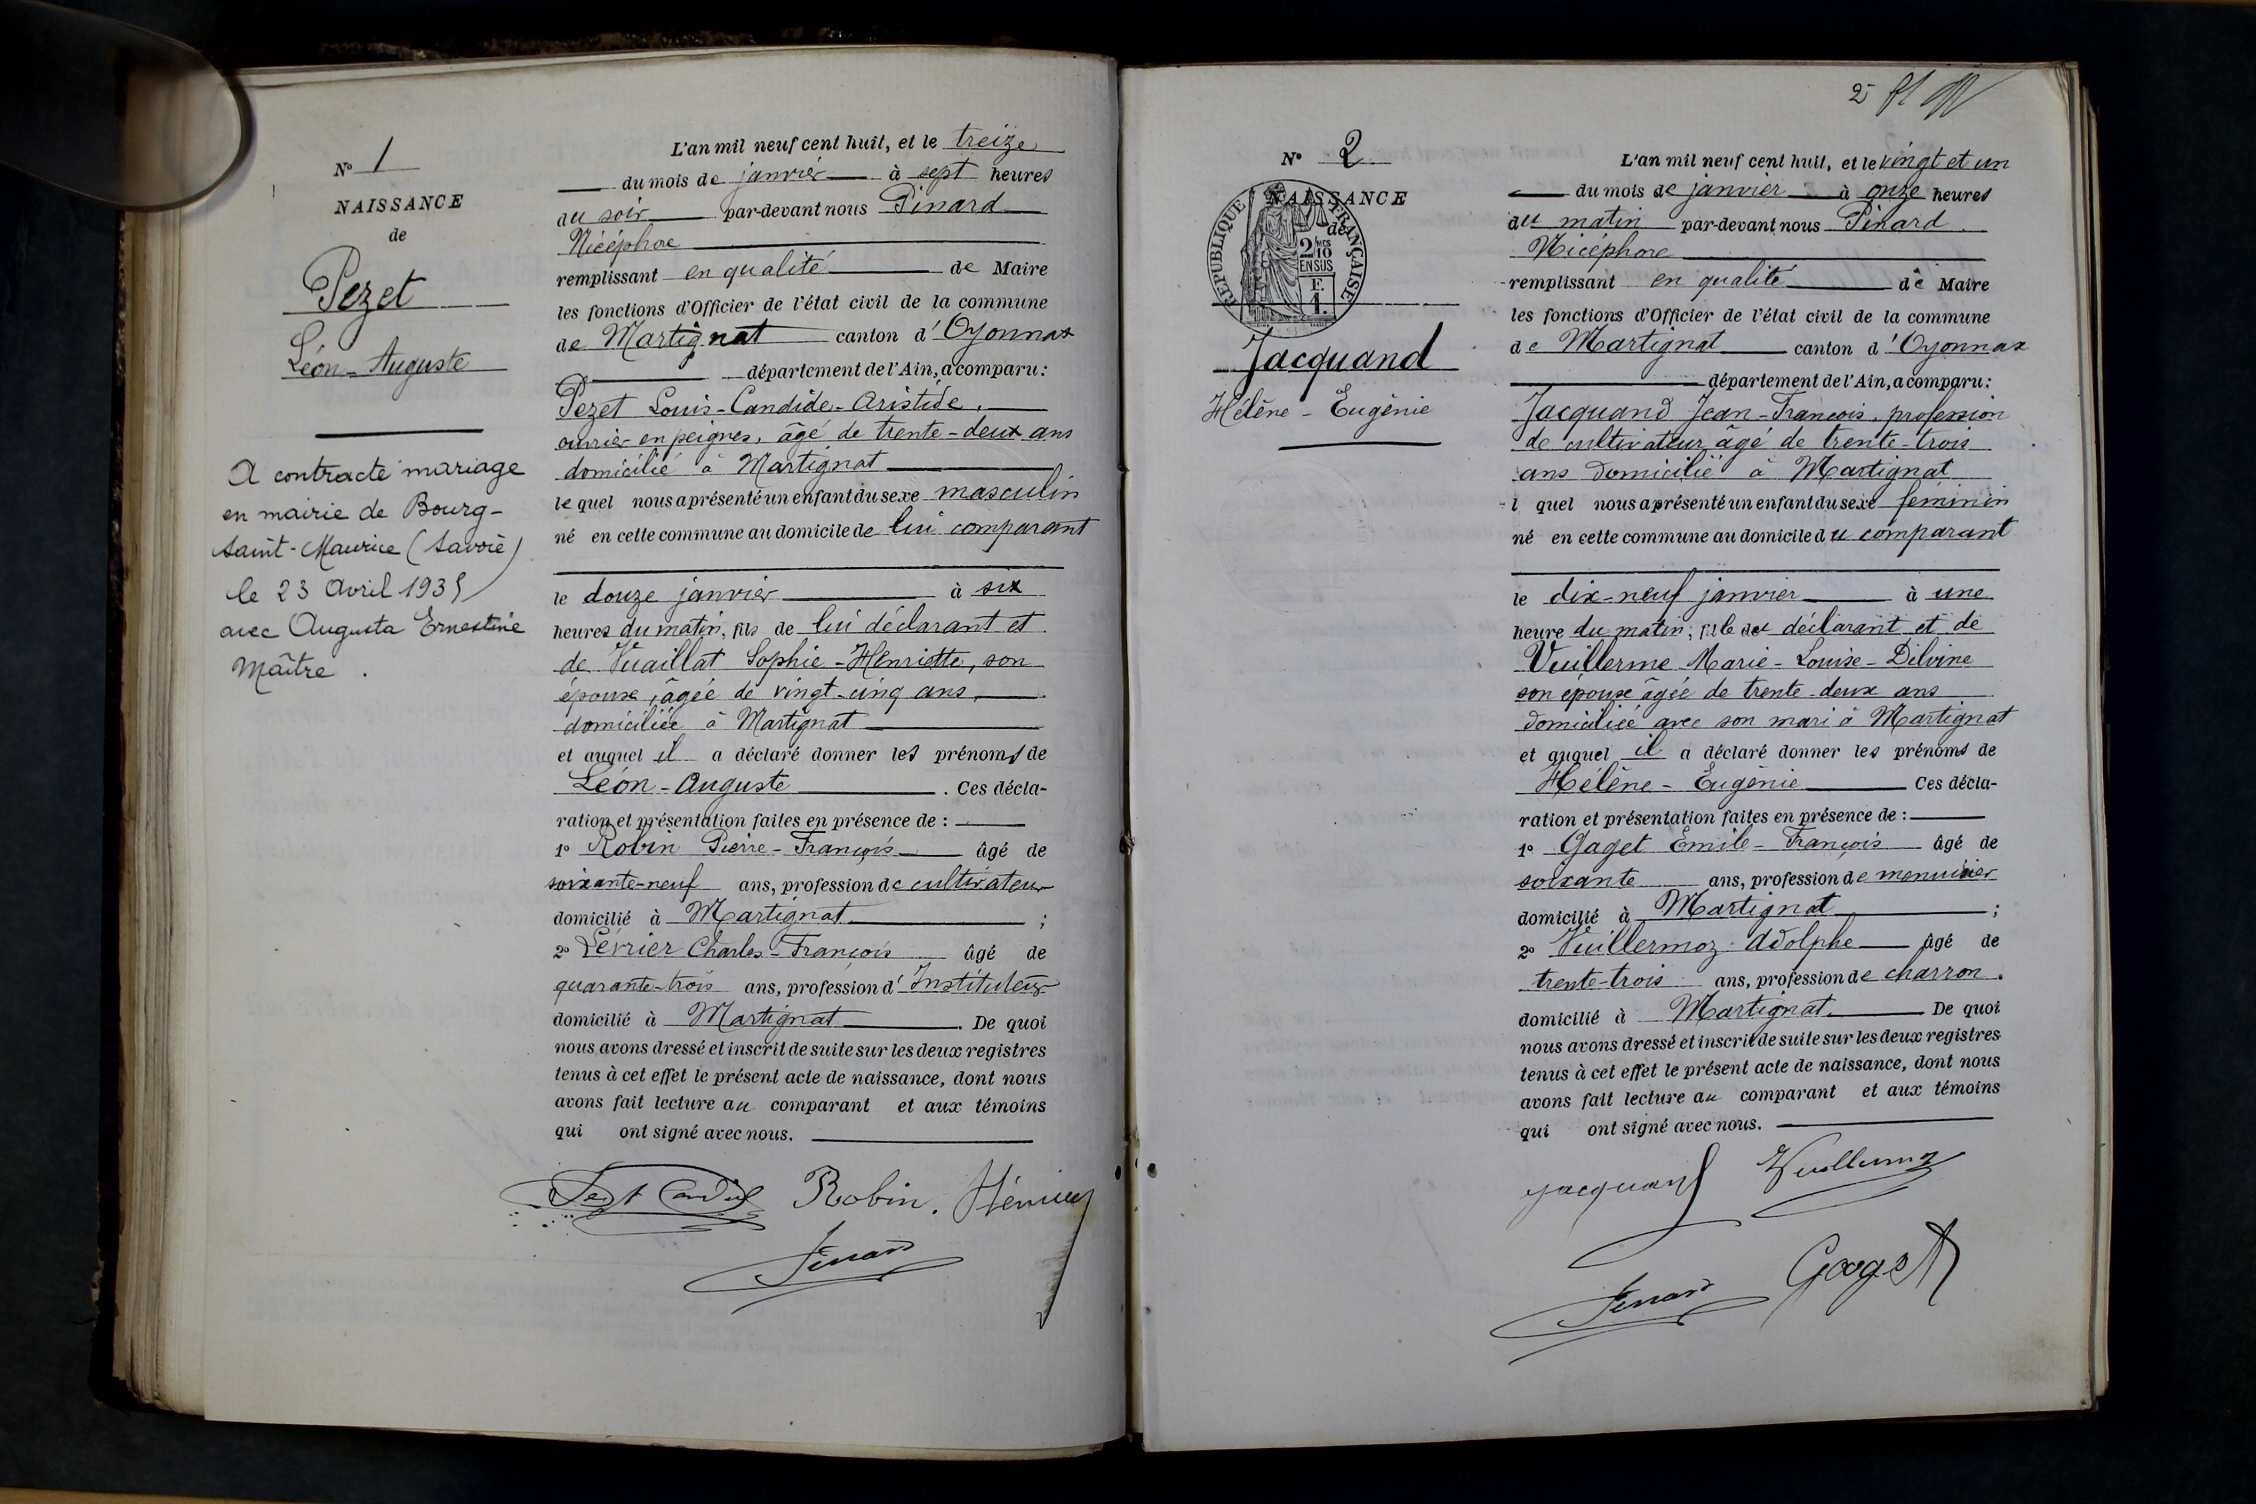 N° 1
NAISSANCE
de
Pezet
Léon-Auguste
A contracté mariage
en mairie de Bourg-
Saint-Maurice (Savoie)
le 23 Avril 1935
avec Augusta Ernestine
Maître.
L'an mil neuf cent huit, et le treize
du mois de janvier à sept heures
du soir par-devant nous Pinard
Nicéphore
remplissant en qualité de Maire
les fonctions d'Officier de l'état civil de la commune
de Martignat canton d'Oyonnax
département de l'Ain, a comparu:
Pezet Louis-Candide-Aristide,
ouvrier en peignes, âgé de trente-deux ans
domicilié à Martignat
lequel nous a présenté un enfant du sexe masculin
né en cette commune au domicile de lui comparant
le douze janvier à six
heures du matin, fils de lui déclarant et
de Vuaillat Sophie-Henriette, son
épouse, âgée de vingt-cinq ans,
domiciliée à Martignat
et auquel il a déclaré donner les prénoms de
Léon-Auguste. Ces décla-
ration et présentation faites en présence de:
1° Robin Pierre-François âgé de
soixante-neuf ans, profession de cultivateur
domicilié à Martignat;
2° Lévrier Charles-François âgé de
quarante-trois ans, profession d'Instituteur
domicilié à Martignat. De quoi
nous avons dressé et inscrit de suite sur les deux registres
tenus à cet effet le présent acte de naissance, dont nous
avons fait lecture au comparant et aux témoins
qui ont signé avec nous.
Robin.
Pinard
2
N° 2
NAISSANCE
de
RÉPUBLIQUE FRANÇAISE
2/10
EN SUS
F.
1.
Jacquand
Hélène-Eugénie
L'an mil neuf cent huit, et le vingt et un
du mois de janvier à onze heures
du matin par-devant nous Pinard
Nicéphore
remplissant en qualité de Maire
les fonctions d'Officier de l'état civil de la commune
de Martignat canton d'Oyonnax
département de l'Ain, a comparu:
Jacquand Jean-François, profession
de cultivateur, âgé de trente-trois
ans domicilié à Martignat
l quel nous a présenté un enfant du sexe féminin
né en cette commune au domicile du comparant
le dix-neuf janvier à une
heure du matin; fille du déclarant et de
Vuillerme Marie-Louise-Delvine
son épouse âgée de trente-deux ans
domiciliée avec son mari à Martignat
et auquel il a déclaré donner les prénoms de
Hélène-Eugénie Ces décla-
ration et présentation faites en présence de:
1° Gaget Emile-François âgé de
soixante ans, profession de menuisier
domicilié à Martignat;
2° Vuillermoz Adolphe âgé de
trente-trois ans, profession de charron.
domicilié à Martignat. De quoi
nous avons dressé et inscrit de suite sur les deux registres
tenus à cet effet le présent acte de naissance, dont nous
avons fait lecture au comparant et aux témoins
qui ont signé avec nous.
Jacquand Vuillermoz
Pinard Gaget